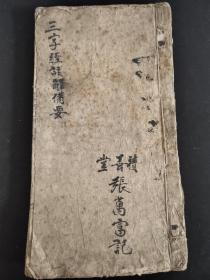 三字經註解備要
積善堂
張萬富記